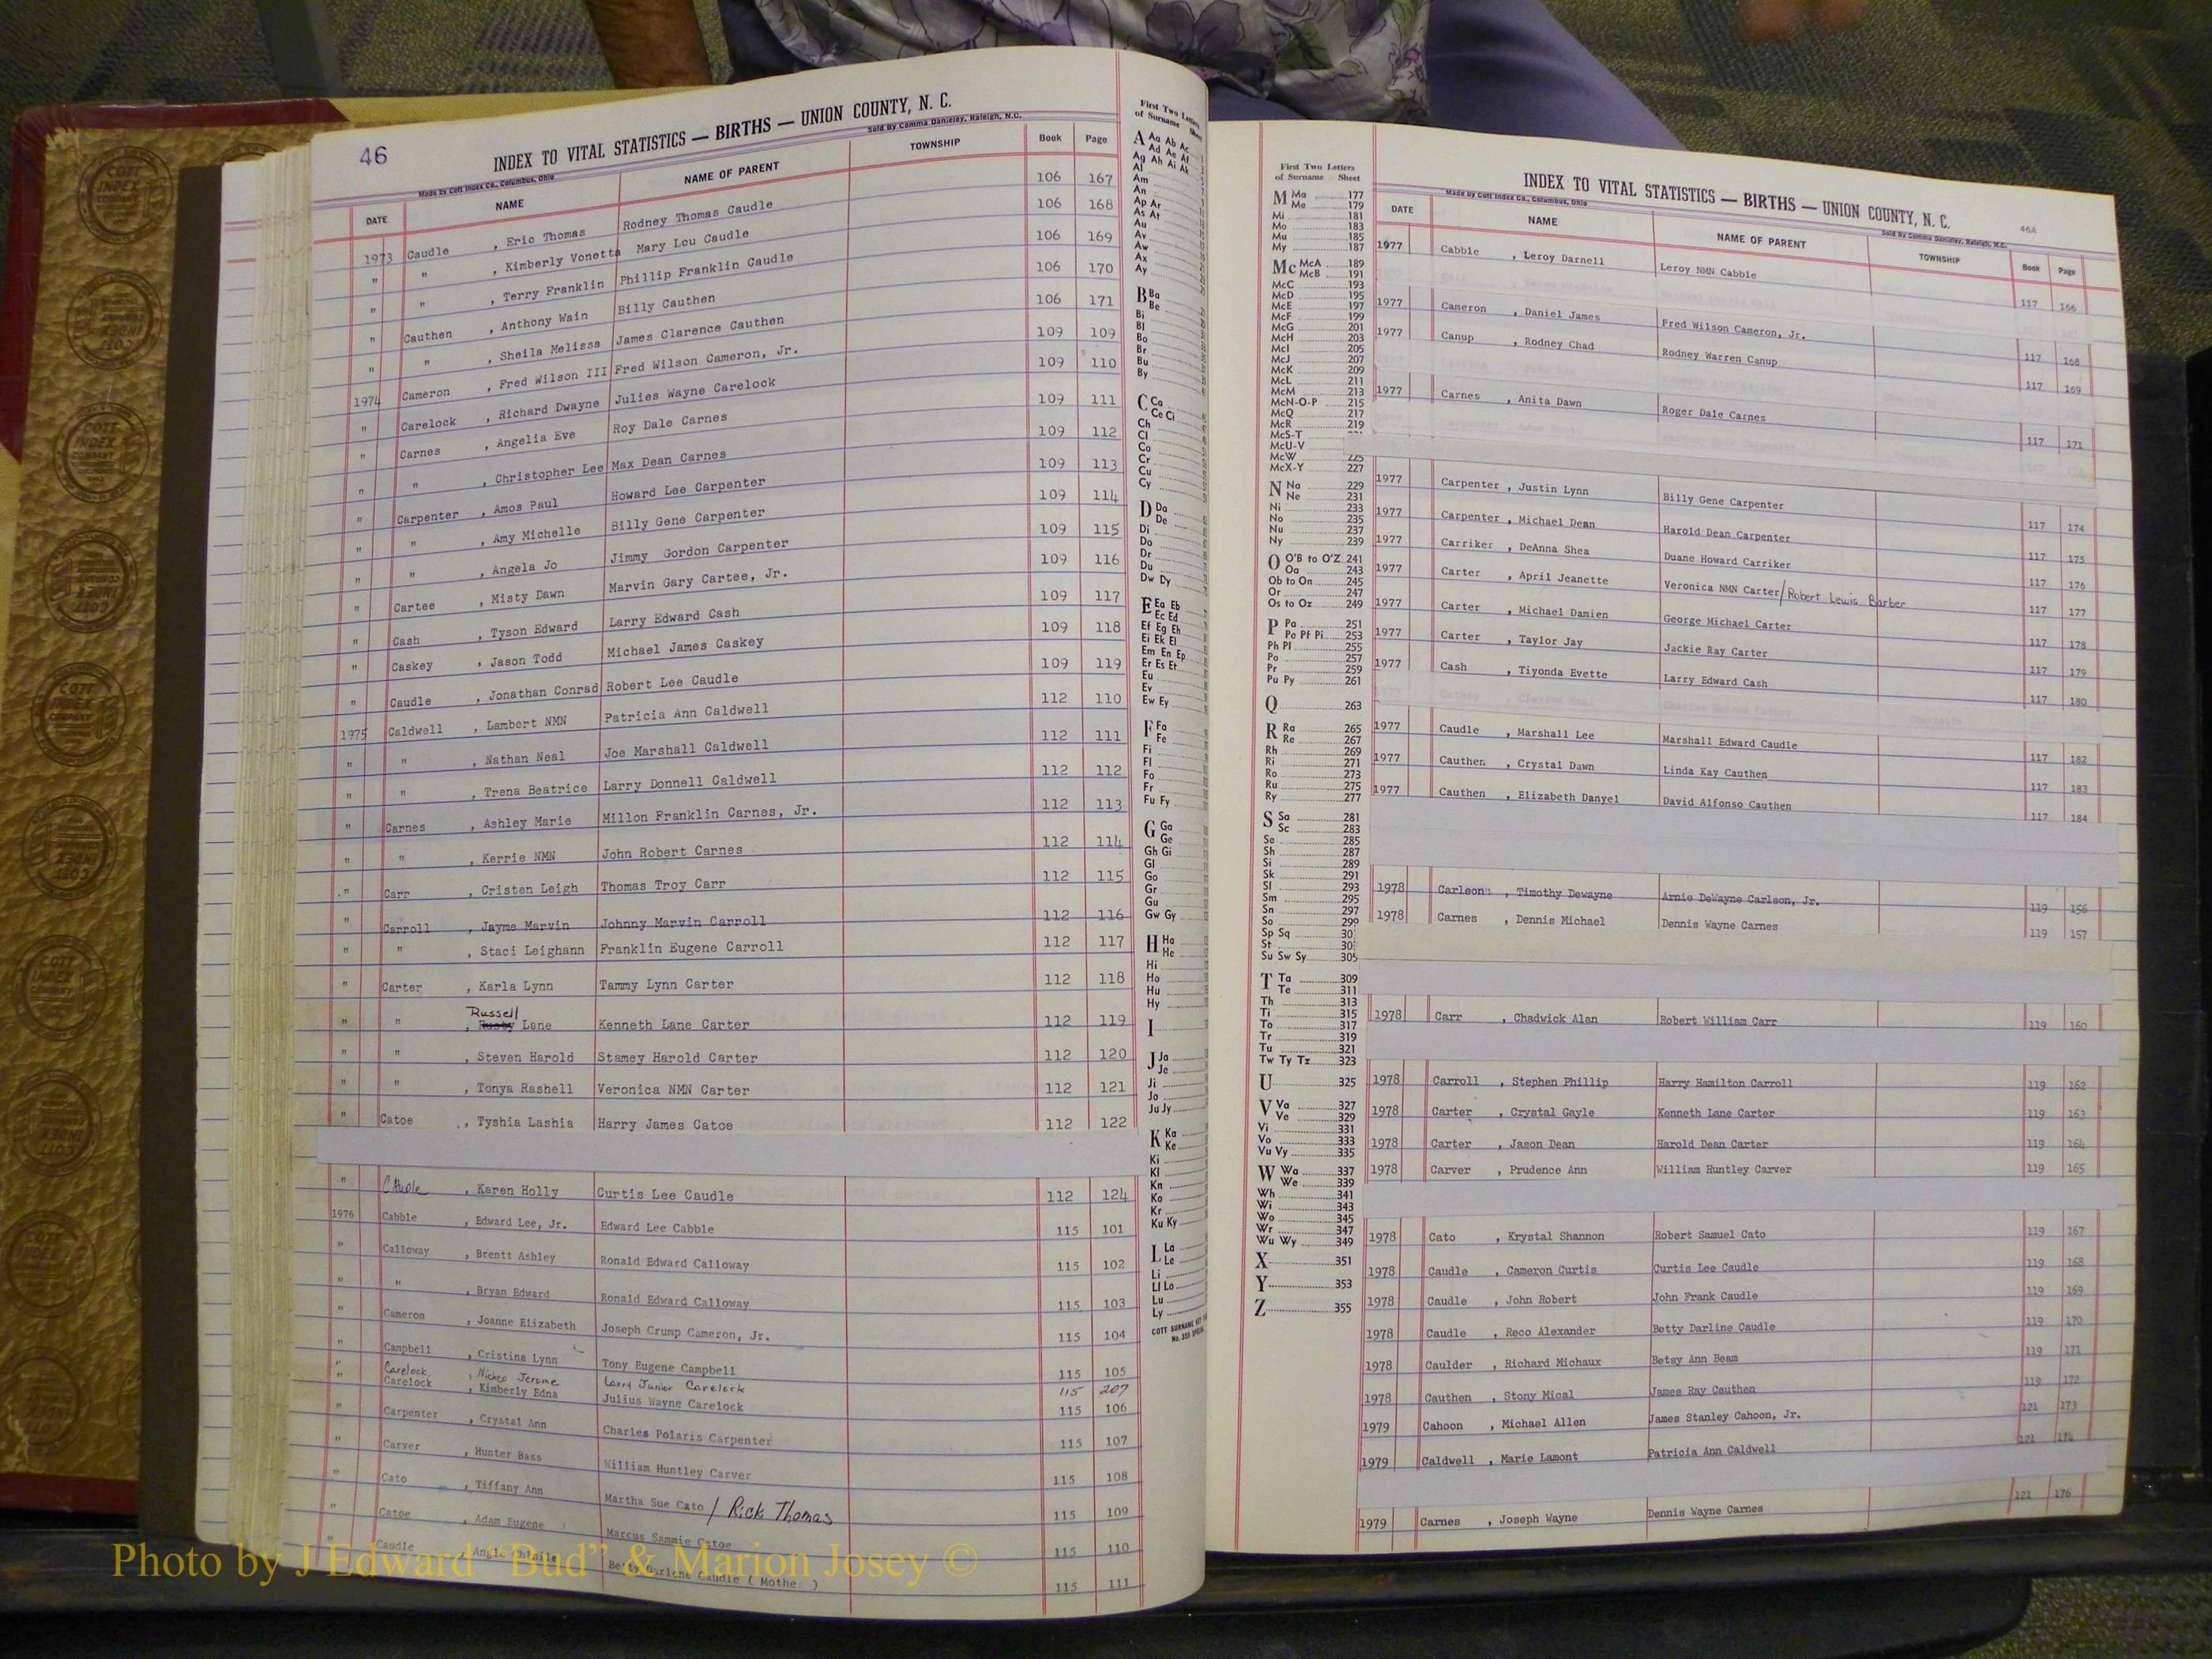 46
INDEX TO VITAL STATISTICS — BIRTHS — UNION COUNTY, N. C.
Made by Cott Index Co., Columbus, Ohio
Sold By Comma Danieley, Raleigh, N.C.
DATE NAME NAME OF PARENT TOWNSHIP Book Page
1973 Caudle , Eric Thomas Rodney Thomas Caudle 106 167
" " , Kimberly Vonetta Mary Lou Caudle 106 168
" " , Terry Franklin Phillip Franklin Caudle 106 169
" Cauthen , Anthony Wain Billy Cauthen 106 170
" " , Sheila Melissa James Clarence Cauthen 106 171
1974 Cameron , Fred Wilson III Fred Wilson Cameron, Jr. 109 109
" Carelock , Richard Dwayne Julies Wayne Carelock 109 110
" Carnes , Angelia Eve Roy Dale Carnes 109 111
" " , Christopher Lee Max Dean Carnes 109 112
" Carpenter , Amos Paul Howard Lee Carpenter 109 113
" " , Amy Michelle Billy Gene Carpenter 109 114
" " , Angela Jo Jimmy Gordon Carpenter 109 115
" Cartee , Misty Dawn Marvin Gary Cartee, Jr. 109 116
" Cash , Tyson Edward Larry Edward Cash 109 117
" Caskey , Jason Todd Michael James Caskey 109 118
" Caudle , Jonathan Conrad Robert Lee Caudle 109 119
1975 Caldwell , Lambert NMN Patricia Ann Caldwell 112 110
" " , Nathan Neal Joe Marshall Caldwell 112 111
" " , Trena Beatrice Larry Donnell Caldwell 112 112
" Carnes , Ashley Marie Millon Franklin Carnes, Jr. 112 113
" " , Kerrie NMN John Robert Carnes 112 114
" Carr , Cristen Leigh Thomas Troy Carr 112 115
" Carroll , Jayme Marvin Johnny Marvin Carroll 112 116
" " , Staci Leighann Franklin Eugene Carroll 112 117
" Carter , Karla Lynn Tammy Lynn Carter 112 118
Russell
" " , Rusty Lane Kenneth Lane Carter 112 119
" " , Steven Harold Stamey Harold Carter 112 120
" " , Tonya Rashell Veronica NMN Carter 112 121
" Catoe , Tyshia Lashia Harry James Catoe 112 122
" Caudle , Karen Holly Curtis Lee Caudle 112 124
1976 Cabble , Edward Lee, Jr. Edward Lee Cabble 115 101
" Calloway , Brentt Ashley Ronald Edward Calloway 115 102
" " , Bryan Edward Ronald Edward Calloway 115 103
" Cameron , Joanne Elizabeth Joseph Crump Cameron, Jr. 115 104
" Campbell , Cristina Lynn Tony Eugene Campbell 115 105
" Carelock , Jerome Larry Junior Carelock 115 207
" Carelock , Kimberly Edna Julius Wayne Carelock 115 106
" Carpenter , Crystal Ann Charles Polaris Carpenter 115 107
" Carver , Hunter Bass William Huntley Carver 115 108
" Cato , Tiffany Ann Martha Sue Cato / Rick Thomas 115 109
" Catoe , Adam Eugene Marcus Sammie Catoe 115 110
" Caudle , Angie Caudle ( Mother ) 115 111
First Two Letters
of Surname Sheet
A Aa Ab Ac
Ad Ae Af
Ag Ah Ai Ak
Al
Am
An
Ap Ar
As At
Au
Av
Aw
Ax
Ay
B Ba
Be
Bi
Bl
Bo
Br
Bu
By
C Ca
Ce Ci
Ch
Cl
Co
Cr
Cu
Cy
D Da
De
Di
Do
Dr
Du
Dw Dy
E Ea Eb
Ec Ed
Ef Eg Eh
Ei Ek El
Em En Ep
Er Es Et
Eu
Ev
Ew Ey
F Fa
Fe
Fi
Fl
Fo
Fr
Fu Fy
G Ga
Ge
Gh Gi
Gl
Go
Gr
Gu
Gw Gy
H Ha
He
Hi
Ho
Hu
Hy
I
J Ja
Je
Ji
Jo
Ju Jy
K Ka
Ke
Ki
Kl
Kn
Ko
Kr
Ku Ky
L La
Le
Li
Ll Lo
Lu
Ly
COTT SURNAME KEY
First Two Letters
of Surname Sheet
M Ma 177
Me 179
Mi 181
Mo 183
Mu 185
My 187
Mc McA 189
McB 191
McC 193
McD 195
McE 197
McF 199
McG 201
McH 203
McI 205
McJ 207
McK 209
McL 211
McM 213
McN-O-P 215
McQ 217
McR 219
McS-T
McU-V
McW 225
McX-Y 227
N Na 229
Ne 231
Ni 233
No 235
Nu 237
Ny 239
O O'B to O'Z 241
Oa 243
Ob to On 245
Or 247
Os to Oz 249
P Pa 251
Pe Pf Pi 253
Ph Pl 255
Po 257
Pr 259
Pu Py 261
Q 263
R Ra 265
Re 267
Rh 269
Ri 271
Ro 273
Ru 275
Ry 277
S Sa 281
Sc 283
Se 285
Sh 287
Si 289
Sk 291
Sl 293
Sm 295
Sn 297
So 299
Sp Sq 30
St 30
Su Sw Sy 305
T Ta 309
Te 311
Th 313
Ti 315
To 317
Tr 319
Tu 321
Tw Ty Tz 323
U 325
V Va 327
Ve 329
Vi 331
Vo 333
Vu Vy 335
W Wa 337
We 339
Wh 341
Wi 343
Wo 345
Wr 347
Wu Wy 349
X 351
Y 353
Z 355
INDEX TO VITAL STATISTICS — BIRTHS — UNION COUNTY, N. C.
46A
Made by Cott Index Co., Columbus, Ohio
Sold By Comma Danieley, Raleigh, N.C.
DATE NAME NAME OF PARENT TOWNSHIP Book Page
1977 Cabble , Leroy Darnell Leroy NMN Cabble 117 166
1977 Cameron , Daniel James Fred Wilson Cameron, Jr. 117 168
1977 Canup , Rodney Chad Rodney Warren Canup 117 169
1977 Carnes , Anita Dawn Roger Dale Carnes 117 171
1977 Carpenter , Justin Lynn Billy Gene Carpenter 117 174
1977 Carpenter , Michael Dean Harold Dean Carpenter 117 175
1977 Carriker , DeAnna Shea Duane Howard Carriker 117 176
1977 Carter , April Jeanette Veronica NMN Carter/Robert Lewis Barber 117 177
1977 Carter , Michael Damien George Michael Carter 117 178
1977 Carter , Taylor Jay Jackie Ray Carter 117 179
1977 Cash , Tiyonda Evette Larry Edward Cash 117 180
1977 Caudle , Marshall Lee Marshall Edward Caudle 117 182
1977 Cauthen , Crystal Dawn Linda Kay Cauthen 117 183
1977 Cauthen , Elizabeth Danyel David Alfonso Cauthen 117 184
1978 Carlson , Timothy Dewayne Arnie DeWayne Carlson, Jr. 119 156
1978 Carnes , Dennis Michael Dennis Wayne Carnes 119 157
1978 Carr , Chadwick Alan Robert William Carr 119 160
1978 Carroll , Stephen Phillip Harry Hamilton Carroll 119 162
1978 Carter , Crystal Gayle Kenneth Lane Carter 119 163
1978 Carter , Jason Dean Harold Dean Carter 119 164
1978 Carver , Prudence Ann William Huntley Carver 119 165
1978 Cato , Krystal Shannon Robert Samuel Cato 119 167
1978 Caudle , Cameron Curtis Curtis Lee Caudle 119 168
1978 Caudle , John Robert John Frank Caudle 119 169
1978 Caudle , Reco Alexander Betty Darline Caudle 119 170
1978 Caulder , Richard Michaux Betsy Ann Beam 119 171
1978 Cauthen , Stony Mical James Ray Cauthen 119 172
1979 Cahoon , Michael Allen James Stanley Cahoon, Jr. 121 173
1979 Caldwell , Marie Lamont Patricia Ann Caldwell 121 174
1979 Carnes , Joseph Wayne Dennis Wayne Carnes 121 176
Photo by J Edward “Bud” & Marion Josey ©